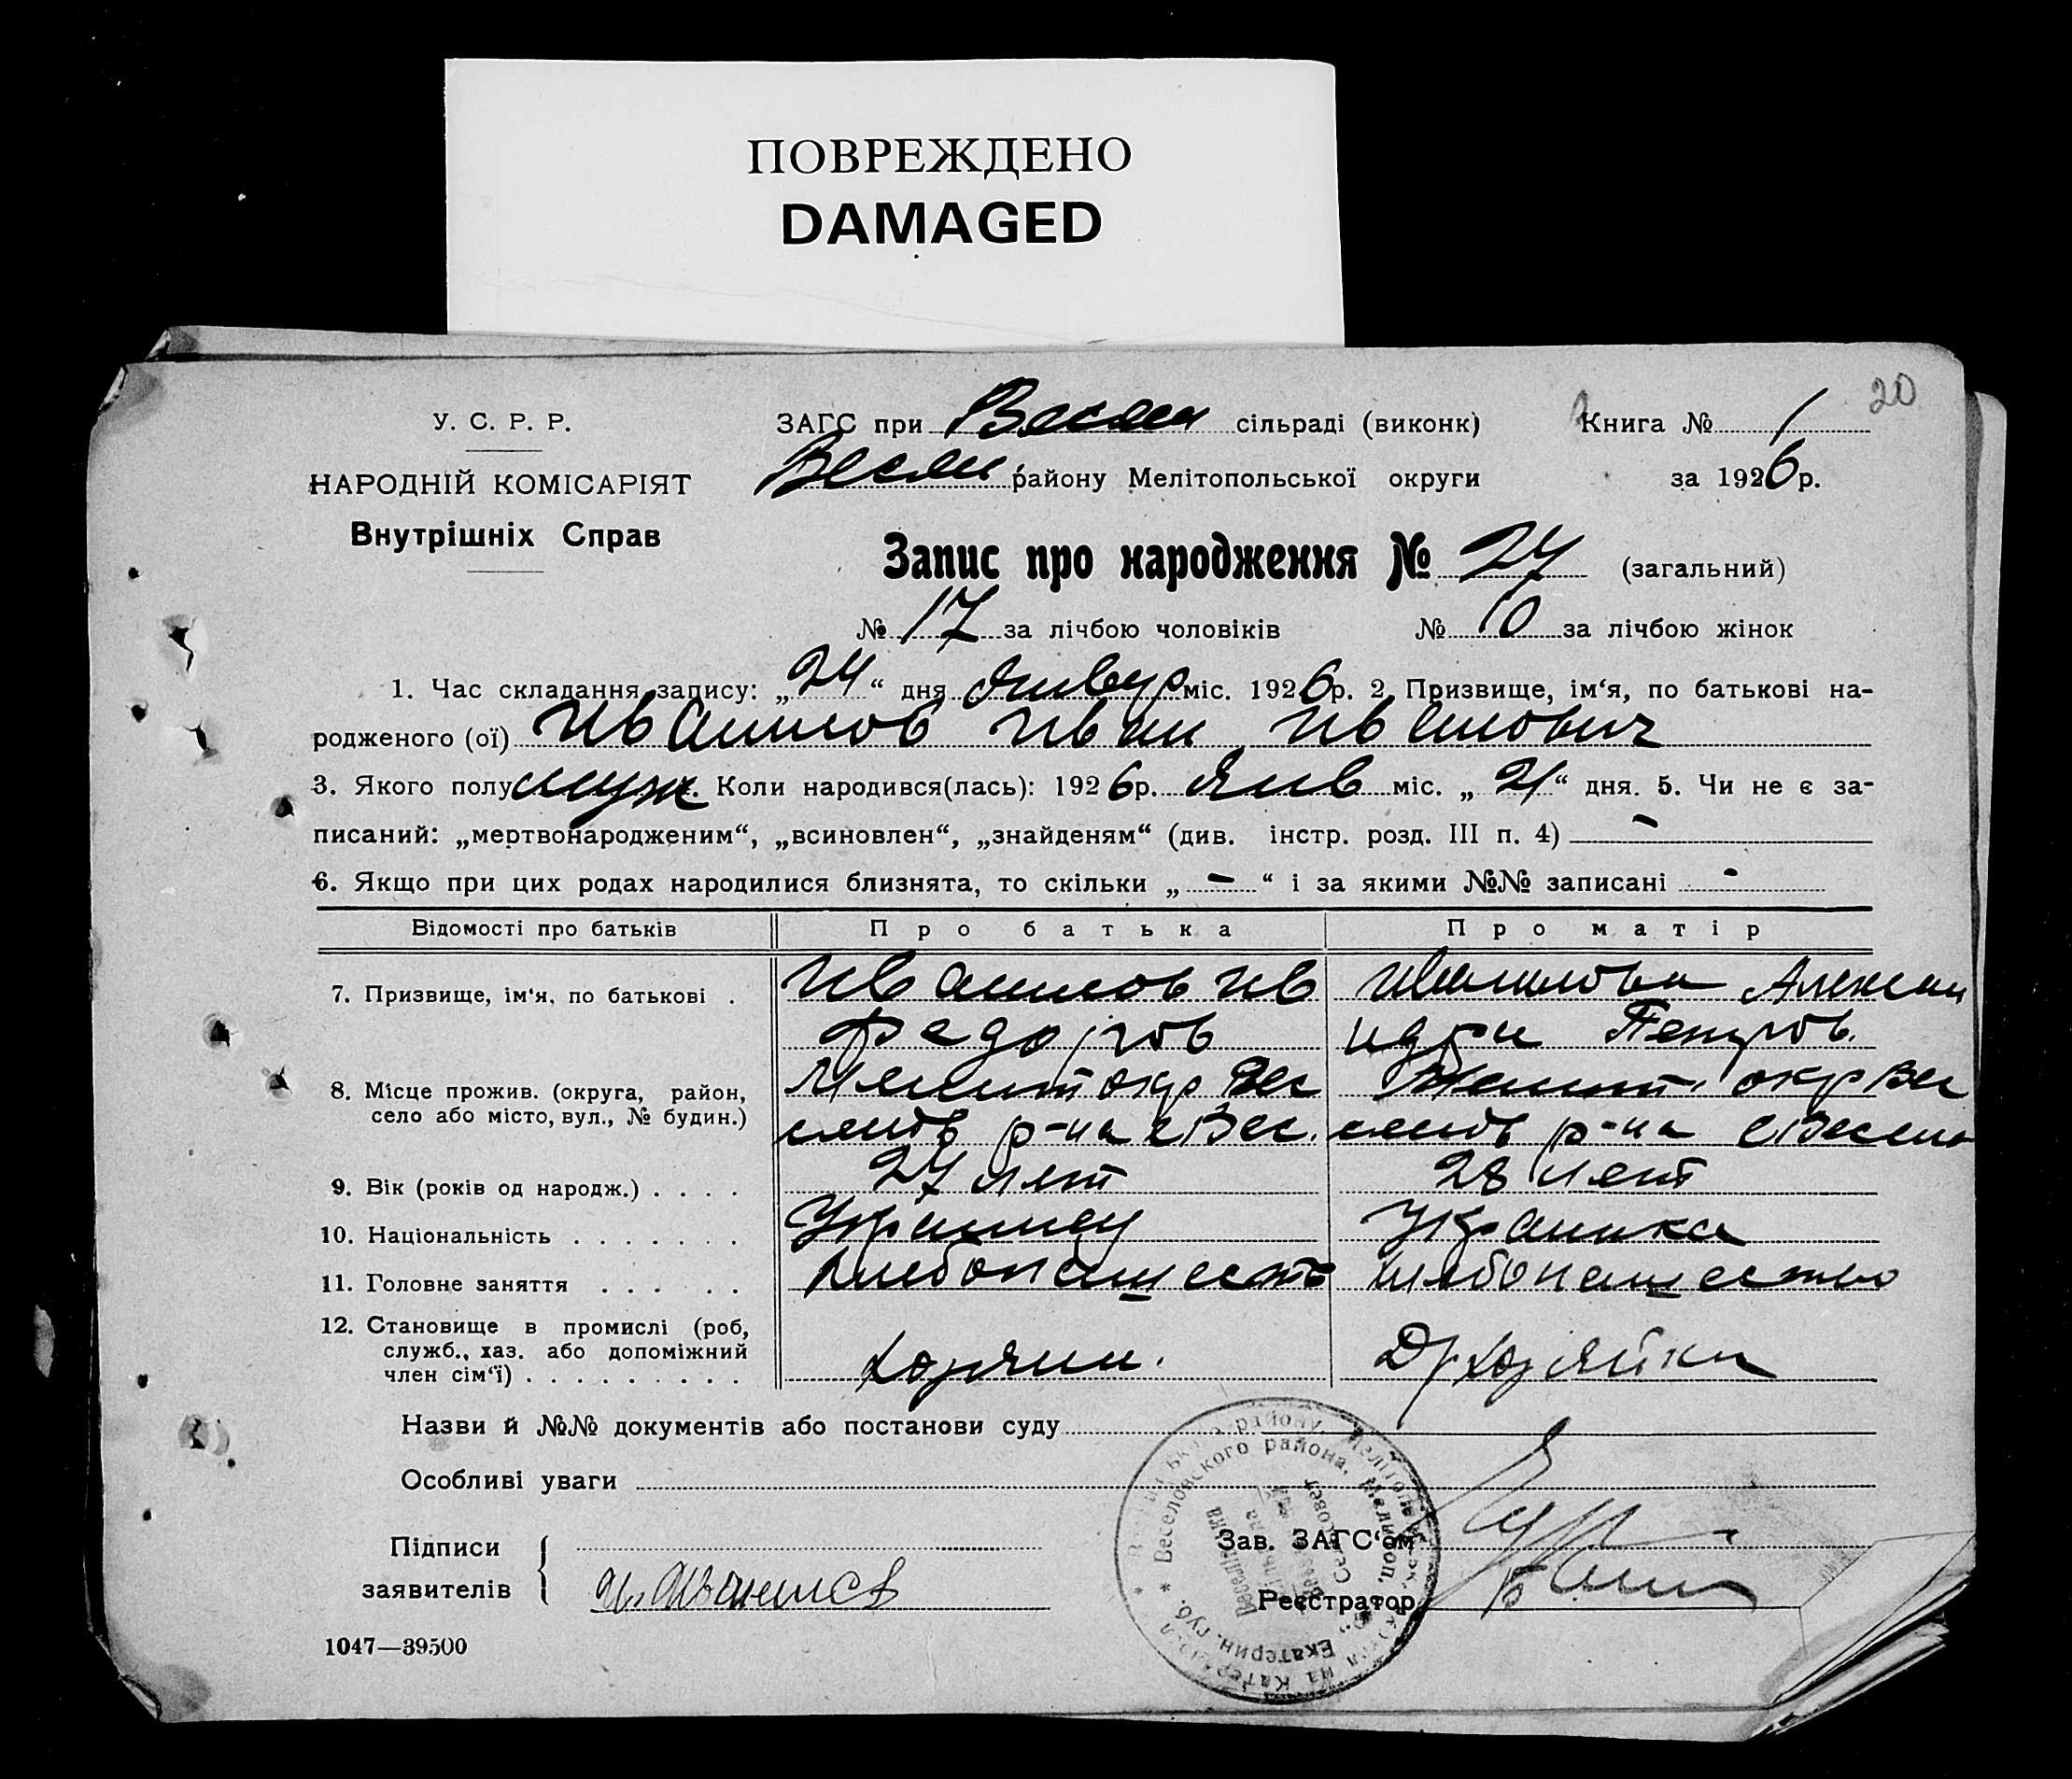 ПОВРЕЖДЕНО
DAMAGED
20
У. С. Р. Р.
ЗАГС при Весел сільраді (виконк)
Книга № 1
НАРОДНІЙ КОМІСАРІЯТ
Весел району Мелітопольської округи
за 1926 р.
Внутрішніх Справ
Запис про народження № 27 (загальний)
№ 17 за лічбою чоловіків № 10 за лічбою жінок
1. Час складання запису: „24“ дня Январ міс. 1926 р. 2. Призвище, ім‘я, по батькові на-
родженого (ої) Иван Иванович
3. Якого полу муж. Коли народився(лась): 1926 р. Янв міс. „21“ дня. 5. Чи не є за-
писаний: „мертвонародженим“, „всиновлен“, „знайденям“ (див. інстр. розд. III п. 4) –
6. Якщо при цих родах народилися близнята, то скільки „–“ і за якими №№ записані -
Відомості про батьків
Про батька
Про матір
7. Призвище, ім‘я, по батькові .
Ив
Алексан
Федоров
Петров.
8. Місце прожив. (округа, район,
село або місто, вул., № будин.)
Мелит окр Вес
Мелит. окр Вес
р-на с Вес.
р-на с Весело
9. Вік (років од народж.) . . . .
27 лет
28 лет
10. Національність . . . . . . .
Украинец
Украинка
11. Головне заняття . . . . .
Хлебопашество
хлебопашество
12. Становище в промислі (роб,
служб., хаз. або допоміжний
член сім‘ї) . . . . . . . . .
Хозяин.
Д/хозяйка
Назви й №№ документів або постанови суду
Особливі уваги
Підписи
заявителів
Зав. ЗАГС‘ом
Реєстратор
Веселовского района, Мелитоп. Екатерин. губ.
1047—39500